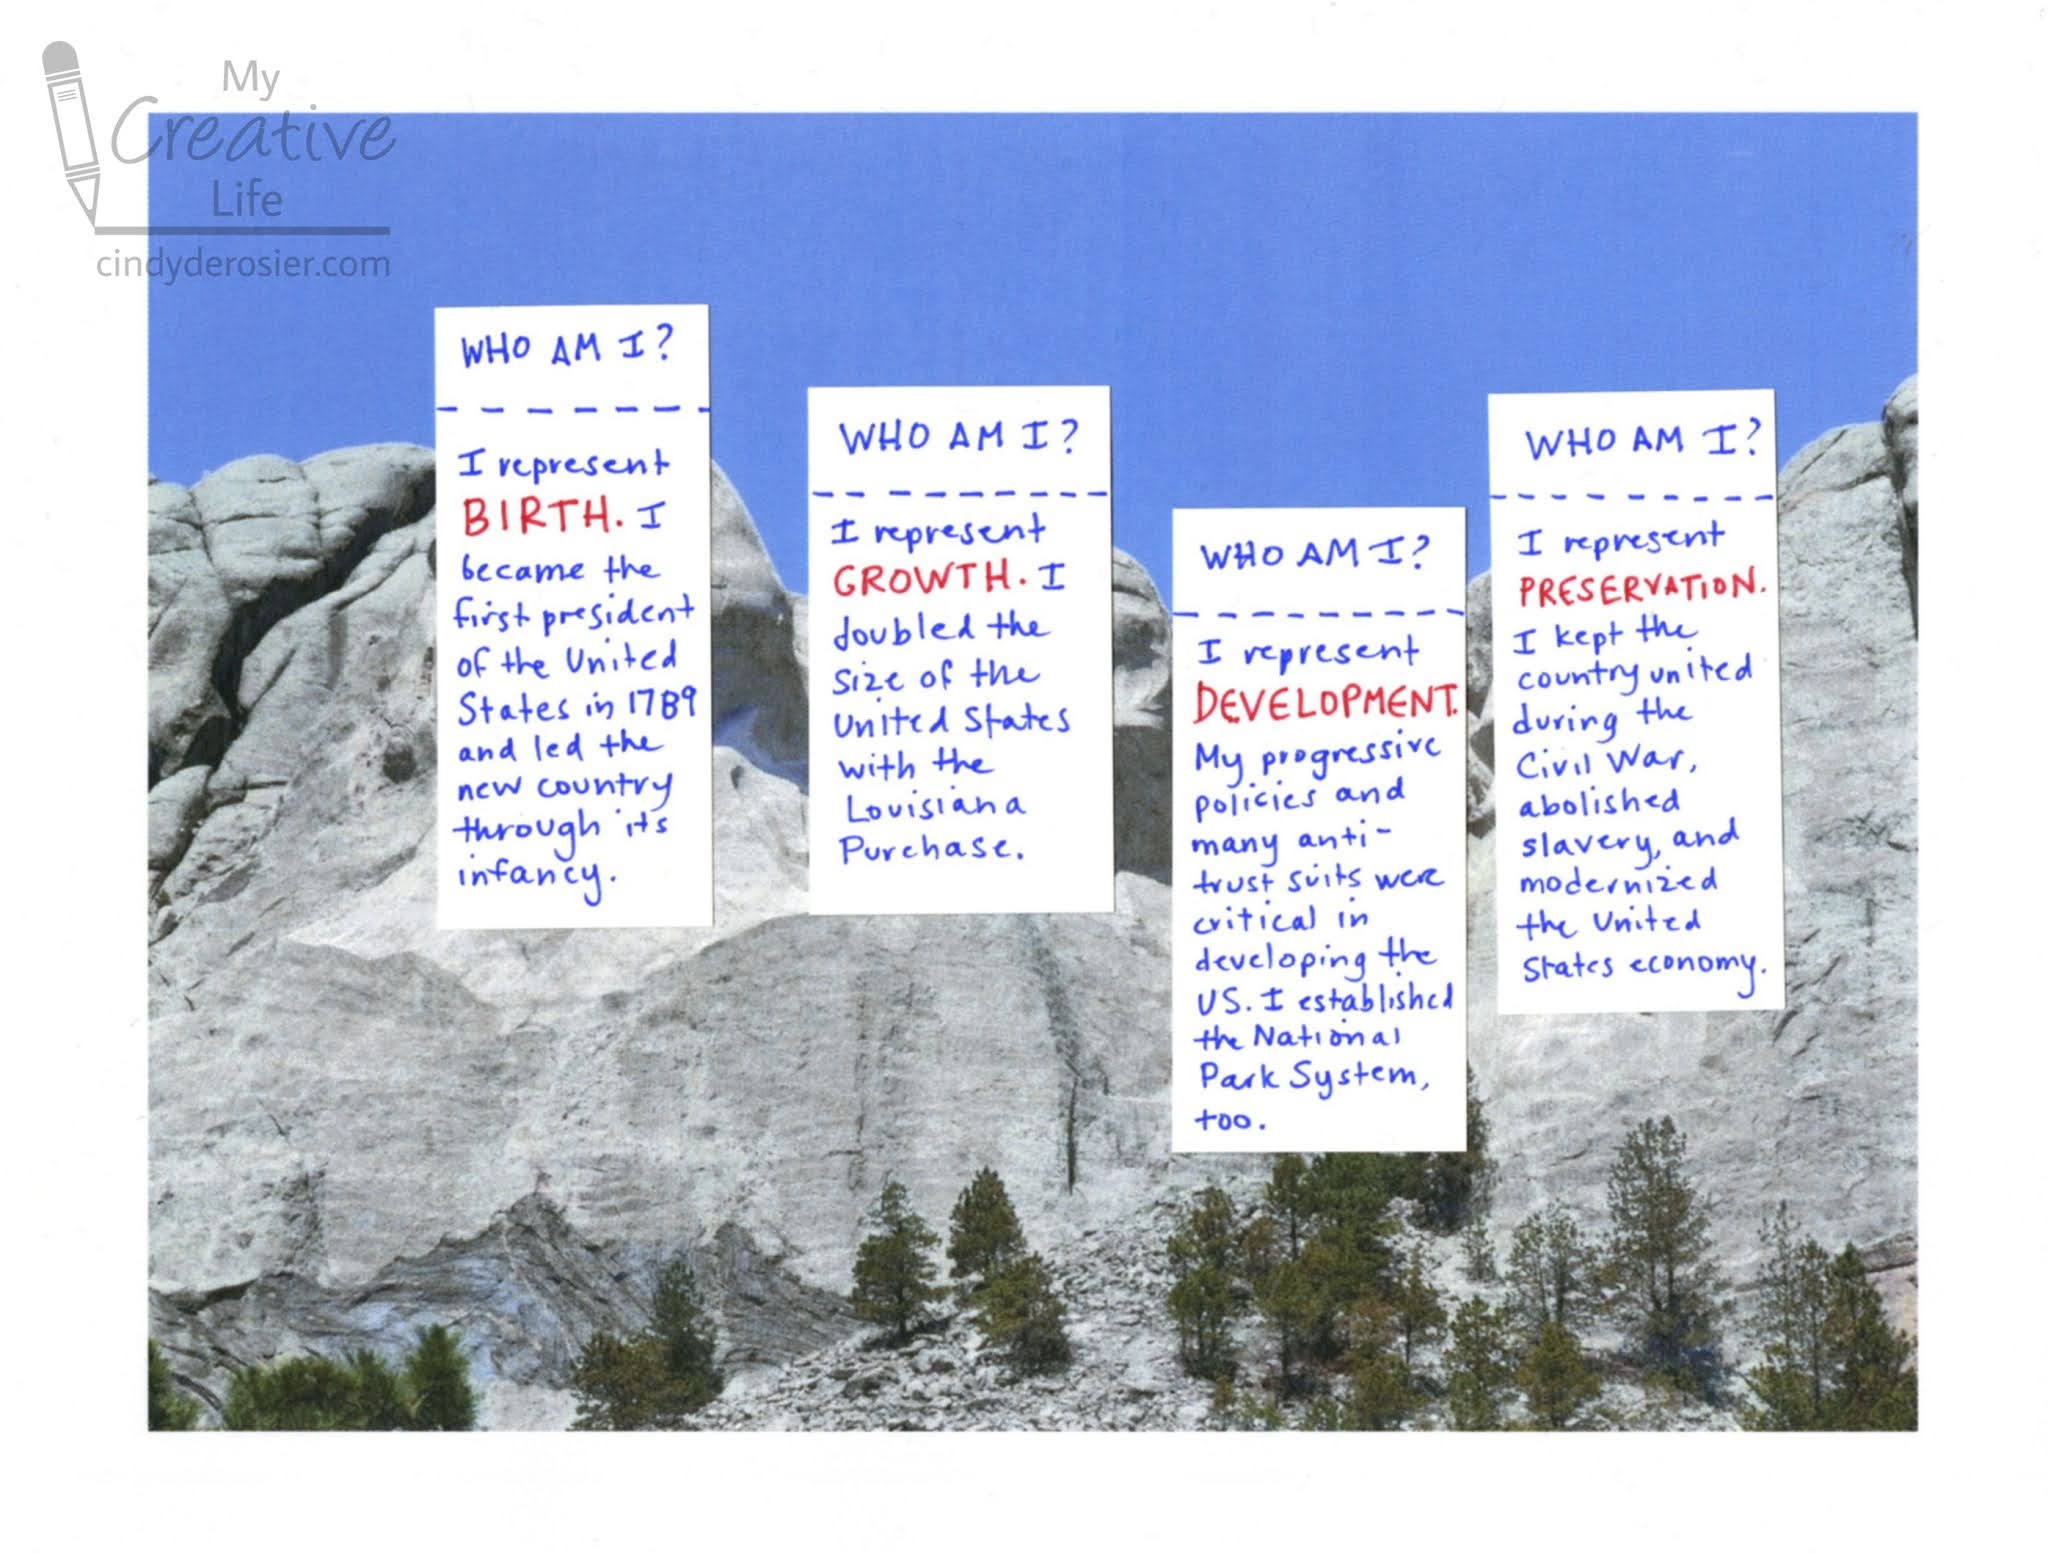 My
Creative
Life
cindyderosier.com
WHO AM I?
I represent
BIRTH. I
became the
first president
of the United
States in 1789
and led the
new country
through its
infancy.
WHO AM I?
I represent
GROWTH. I
doubled the
size of the
United States
with the
Louisiana
Purchase.
WHO AM I?
I represent
DEVELOPMENT.
My progressive
policies and
many anti-
trust suits were
critical in
developing the
US. I established
the National
Park System,
too.
WHO AM I?
I represent
PRESERVATION.
I kept the
country united
during the
Civil War,
abolished
slavery, and
modernized
the United
States economy.